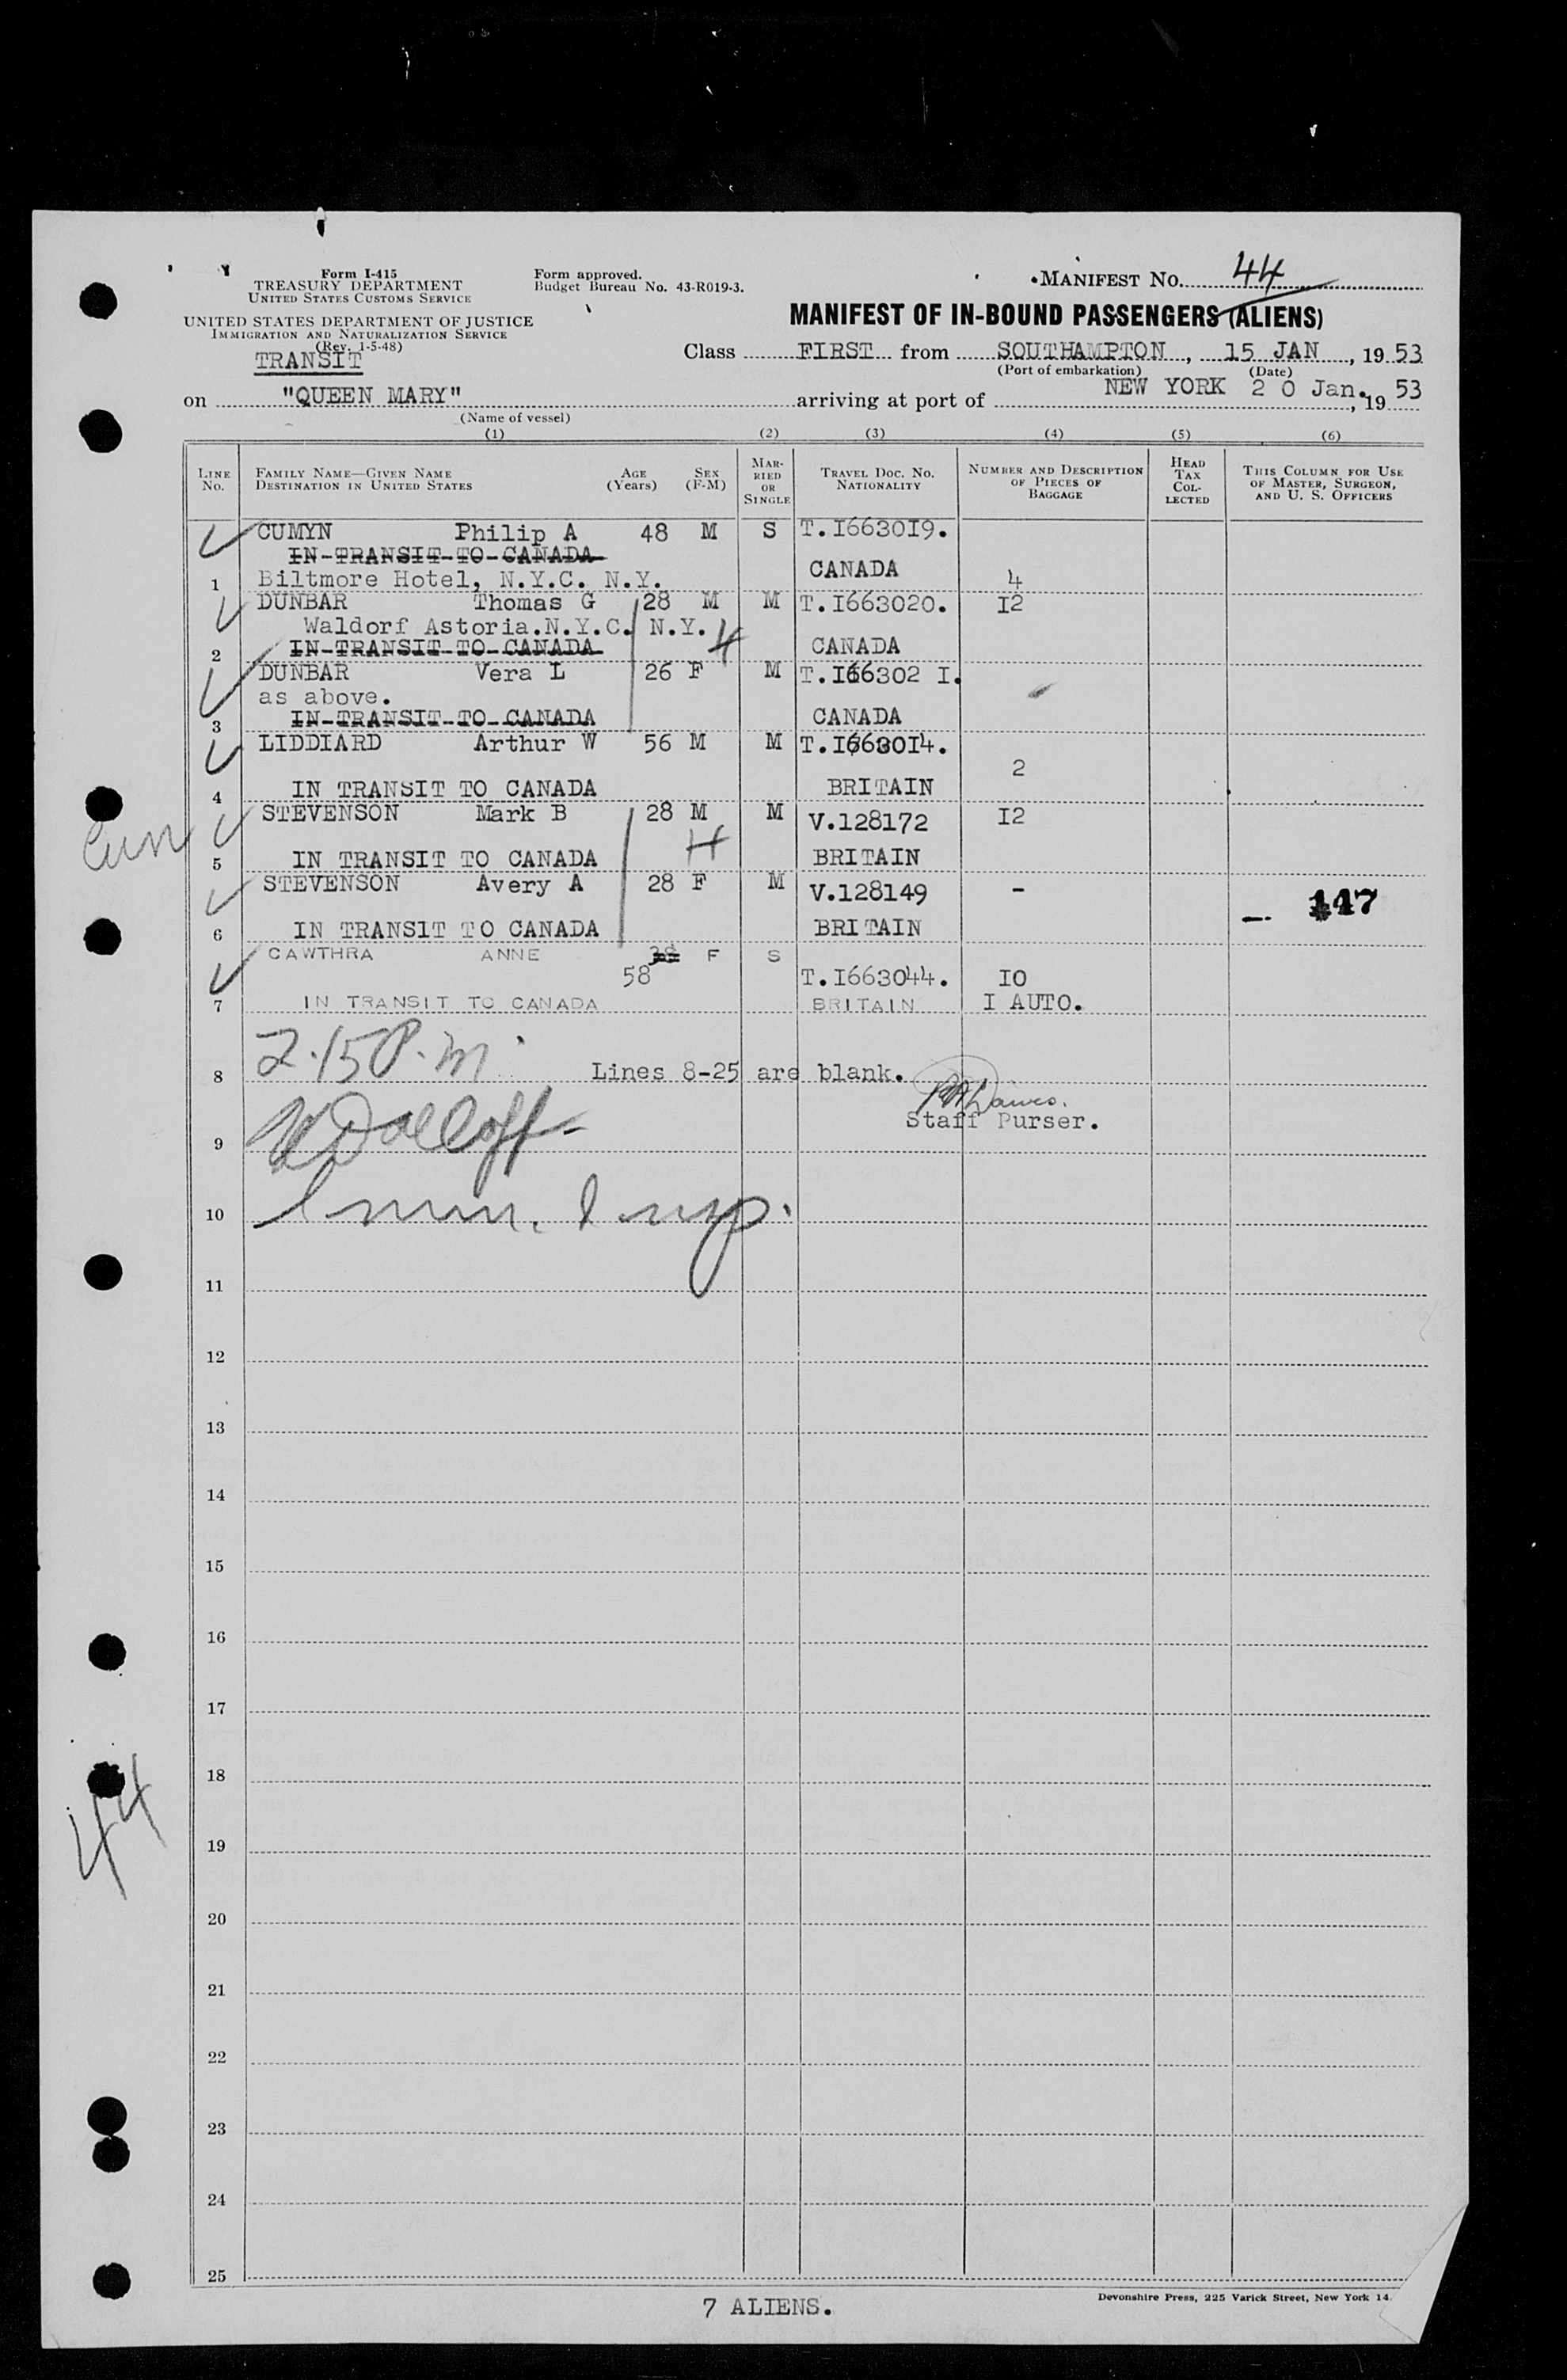 Form I-415
TREASURY DEPARTMENT
UNITED STATES CUSTOMS SERVICE
UNITED STATES DEPARTMENT OF JUSTICE
IMMIGRATION AND NATURALIZATION SERVICE
(Rev. 1-5-48)
TRANSIT
Form approved.
Budget Bureau No. 43-R019-3.
MANIFEST No. 44
MANIFEST OF IN-BOUND PASSENGERS (ALIENS)
Class FIRST from SOUTHAMPTON, 15 JAN, 19 53
(Port of embarkation) (Date)
on "QUEEN MARY" arriving at port of NEW YORK 20 Jan., 19 53
(Name of vessel)
(1) (2) (3) (4) (5) (6)
LINE No. FAMILY NAME—GIVEN NAME DESTINATION IN UNITED STATES AGE (Years) SEX (F-M) MARRIED OR SINGLE TRAVEL DOC. No. NATIONALITY NUMBER AND DESCRIPTION OF PIECES OF BAGGAGE HEAD TAX COLLECTED THIS COLUMN FOR USE OF MASTER, SURGEON, AND U. S. OFFICERS
CUMYN Philip A 48 M S T.I663019.
IN-TRANSIT-TO-CANADA
CANADA
1 Biltmore Hotel, N.Y.C. N.Y. 4
DUNBAR Thomas G 28 M M T.I663020. I2
Waldorf Astoria.N.Y.C. N.Y. 4
2 IN-TRANSIT-TO-CANADA CANADA
DUNBAR Vera L 26 F M T.I66302 I.
as above.
3 IN-TRANSIT-TO-CANADA CANADA
LIDDIARD Arthur W 56 M M T.I663014.
2
4 IN TRANSIT TO CANADA BRITAIN
STEVENSON Mark B 28 M M V.128172 I2
5 IN TRANSIT TO CANADA BRITAIN
STEVENSON Avery A 28 F M V.128149 -
147
6 IN TRANSIT TO CANADA BRITAIN
CAWTHRA ANNE 38 F S
58 T.I663044. IO
7 IN TRANSIT TO CANADA BRITAIN I AUTO.
2.15 P.M.
8 Lines 8-25 are blank.
Staff Purser.
9
10 Imm. Insp.
11
12
13
14
15
16
17
18
44
19
20
21
22
23
24
25
7 ALIENS.
Devonshire Press, 225 Varick Street, New York 14